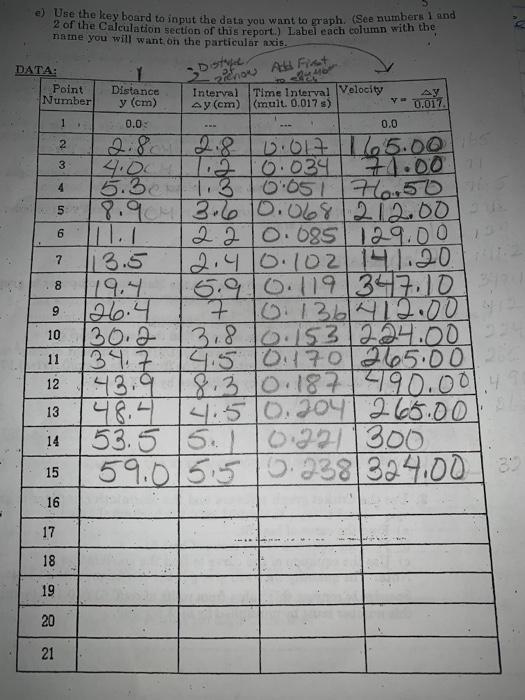 e) Use the key board to input the data you want to graph. (See numbers 1 and
2 of the Calculation section of this report.) Label each column with the
name you will want on the particular axis.
DATA:
Point Number Distance y (cm) Interval △y (cm) Time Interval (mult. 0.017 s) Velocity v = △y / 0.017
1 0.0 --- --- 0.0
2 2.8 2.8 0.017 165.00
3 4.0 1.2 0.034 71.00
4 5.3 1.3 0.051 76.50
5 8.9 3.6 0.068 212.00
6 11.1 2.2 0.085 129.00
7 13.5 2.4 0.102 141.20
8 19.4 5.9 0.119 347.10
9 26.4 7 0.136 412.00
10 30.2 3.8 0.153 224.00
11 34.7 4.5 0.170 265.00
12 43.9 8.3 0.187 490.00
13 48.4 4.5 0.204 265.00
14 53.5 5.1 0.221 300
15 59.0 5.5 0.238 324.00
16
17
18
19
20
21